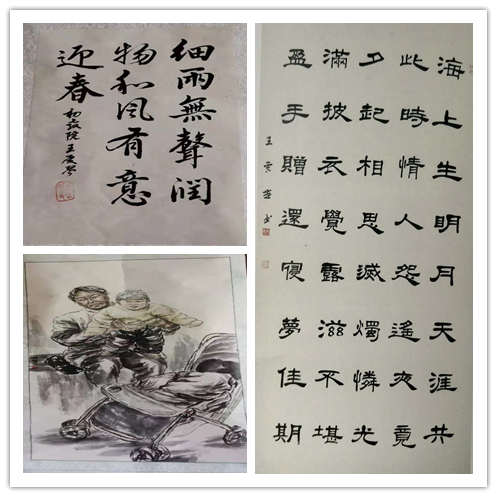 細雨無聲潤
物和风有意
迎春
初教院 王
海上生明月天涯共
此時情人怨遙夜竟
夕起相思滅燭憐光
滿披衣覺露滋不堪
盈手贈還寢夢佳期
王雲 书